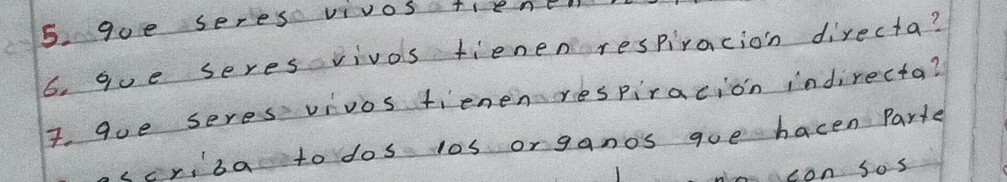 5. que seres vivos tienen
6. que seres vivos tienen respiración directa?
7. que seres vivos tienen respiración indirecta?
escriba todos los organos que hacen Parte
con sos